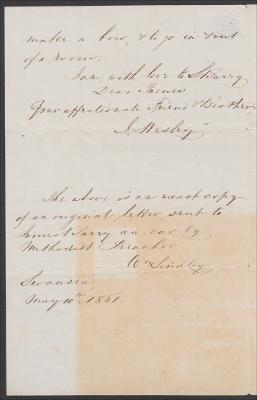 make a bow, & to go in & out
of a room.
I am, with love to Harry
Dear James
Your affectionate Friend & Brother,
J. Wesley"
The above is an exact copy
of an original letter sent to
James Barry an early
Methodist Preacher
Wm Lindley
Swansea,
May 10th 1861.